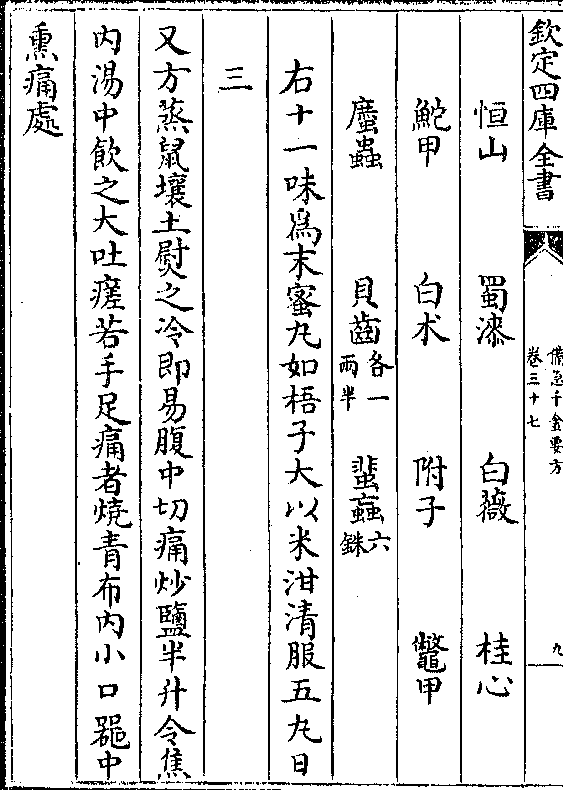 欽定四庫全書
備急千金要方
卷三十七
九
恒山 蜀漆 白薇 桂心
鮀甲 白朮 附子 鼈甲
䗪蟲 貝齒各一兩半 蜚蝱六銖
右十一味為末蜜丸如梧子大以米泔清服五丸日
三
又方蒸鼠壤土熨之冷即易腹中切痛炒鹽半升令焦
内湯中飲之大吐瘥若手足痛者燒青布内小口器中
熏痛處